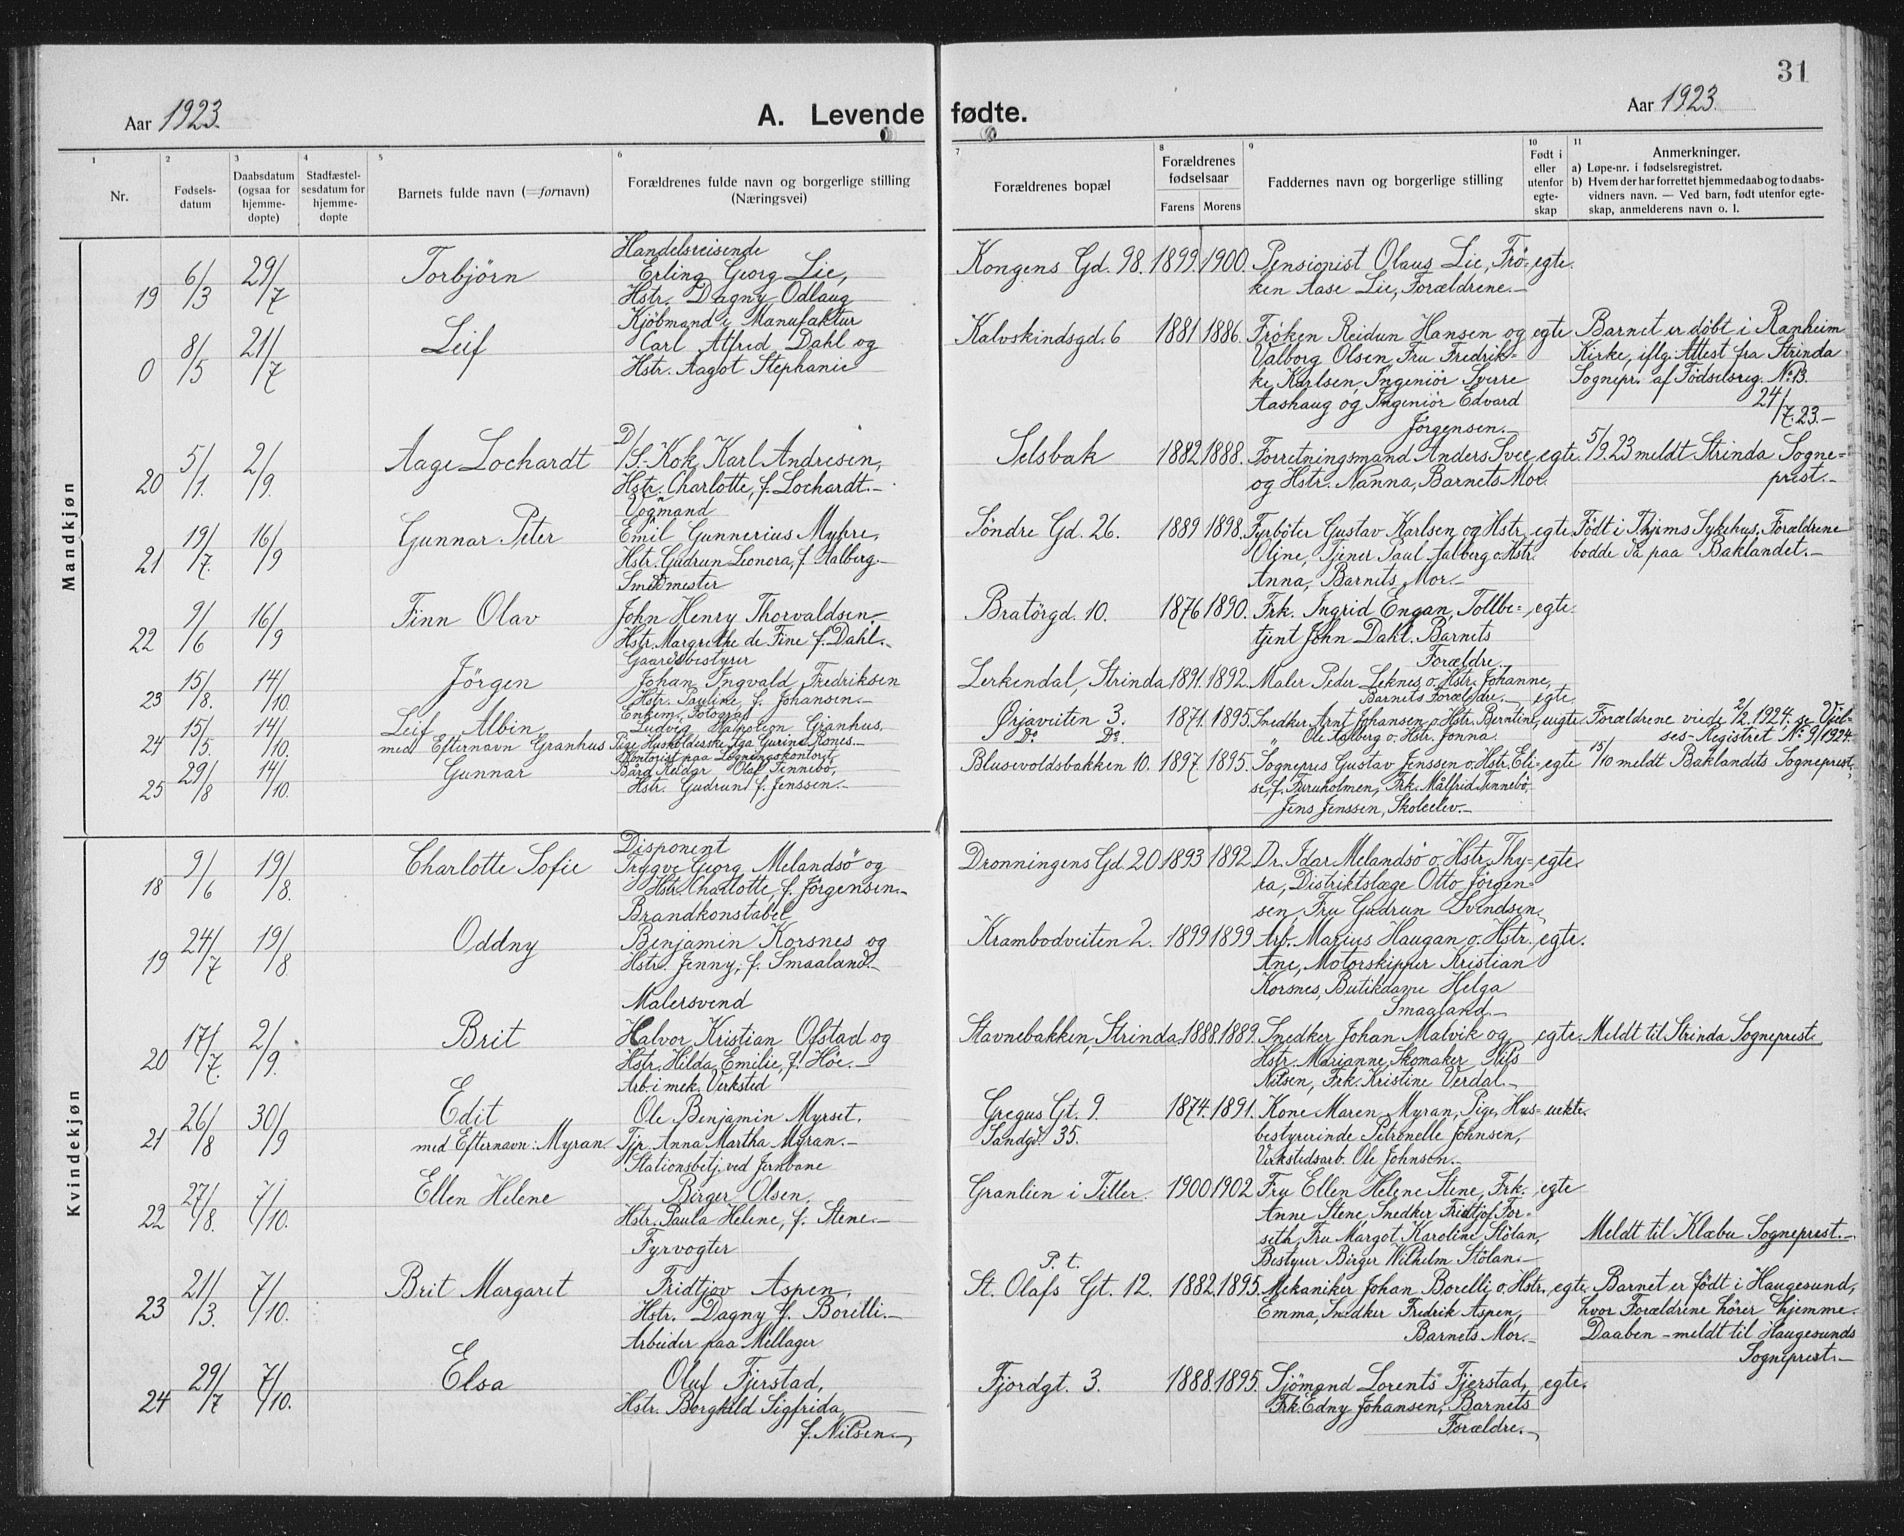 31
Aar 1923.
A. Levende fødte.
Aar 1923.
1 2 3 4 5 6 7 8 9 10 11
Nr.
Fødsels-
datum
Daabsdatum
(ogsaa for
hjemme-
døpte)
Stadfæstel-
sesdatum for
hjemme-
døpte
Barnets fulde navn (=fornavn)
Forældrenes fulde navn og borgerlige stilling
(Næringsvei)
Forældrenes bopæl
Forældrenes
fødselsaar
Farens Morens
Faddernes navn og borgerlige stilling
Født i
eller
utenfor
egte-
skap
Anmerkninger.
a) Løpe-nr. i fødselsregistret.
b) Hvem der har forrettet hjemmedaab og to daabs-
vidners navn. — Ved barn, født utenfor egte-
skap, anmelderens navn o. l.
Mandkjøn
19 6/3 29/7 Torbjörn
Handelsreisende
Erling Georg Lie,
Hstr. Dagny Odlaug
Kongens Gd. 98. 1899. 1900.
Pensionist Olaus Lie, Frö-
ken Aase Lie, Forældrene.—
egte.
0 8/5 21/7 Leif
Kjöbmand i Manufaktur
Carl Alfred Dahl og
Hstr. Aagot Stephanie
Kalvskindsgd. 6 1881 1886.
Fröken Reidun Hansen og
Valborg Olsen, Fru Fredrik-
ke Karlsen, Ingeniör Sverre
Aashaug og Ingeniör Edvard
Jörgensen.—
egte
Barnet er döbt i Ranheim
Kirke, iflg. Attest fra Strinda
Sognepr. af Födselsreg. No. 13.
24/7. 23.—
20 5/1. 2/9. Aage Lochardt
D/S.-Kok Karl Andresen,
Hstr. Charlotte, f. Lochardt.—
Selsbak 1882 1888.
Forretningsmand Anders Svee
og Hstr. Nanna, Barnets Mor.
egte.
5/9. 23 meldt Strinda Sogne-
prest.—
21 19/7. 16/9 Gunnar Peter
Vogmand
Emil Gunnerius Myhre,
Hstr. Gudrun Leonora, f. Aalberg.—
Söndre Gd. 26. 1889 1898.
Fyrböter Gustav Karlsen og Hstr.
Oline, Tjener Paul Aalberg o. Hstr.
Anna, Barnets Mor.—
egte
Födt i Thjems Sykehus. Forældrene
bodde da paa Baklandet.—
22 9/6 16/9 Finn Olav
Smedmester
John Henry Thorvaldsen.
Hstr. Margrethe de Fine f. Dahl.—
Bratörgd. 10. 1876 1890.
Frk. Ingrid Engan, Tollbe-
tjent John Dahl. Barnets
Forældre.
egte.
23 15/8. 14/10. Jörgen
Gaardsbestyrer
Johan Ingvald Fredriksen
Hstr. Pauline f. Johansen.—
Lerkendal, Strinda 1891. 1892.
Maler Peder Leknes o. Hstr. Johanne,
Barnets Forældre.—
egte
24 15/5. 14/10. Leif Albin
med Efternavn Granhus
Enkem. Fotograf
Ludvig Napoleon Granhus.
Pige Husholderske Aga Gurine Rønes.—
Ørjaveiten 3. 1871. 1895.
Do Do.
Snedker Arnt Johansen o Hstr. Berntine,
" Ole Aalberg o. Hstr. Jonna.
uegte
Forældrene viede 2/2. 1924. se Viel-
ses-Registret No. 9/1924.
25 29/8 14/10. Gunnar
Kontorist paa Ligningskontoret
Bård Reidar Olaf Tennebö,
Hstr. Gudrun f. Jenssen.—
Blusevoldsbakken 10. 1897. 1895.
Sognepres Gustav Jenssen o. Hstr. Eli-
se, f. Furuholmen, Frk. Målfrid Tennebö,
Jens Jenssen, Skoleelev.—
egte
15/10 meldt Baklandets Sogneprest.
Kvindekjøn
18 9/6 19/8. Charlotte Sofie
Disponent
Trygve Georg Melandsö og
Hstr. Charlotte, f. Jörgensen.—
Dronningens Gd. 20 1893 1892.
Dr. Idar Melandsö o. Hstr. Thy-
ra, Distriktslæge Otto Jörgen-
sen, Fru Gudrun Svendsen,
egte
19 24/7 19/8 Oddny
Brandkonstabel
Benjamin Korsnes og
Hstr. Jenny, f. Smaaland.—
Krambodveiten 2. 1899 1899
Arb. Marius Haugan o. Hstr.
Ane, Motorskipper Kristian
Korsnes, Butikdame Helga
Smaaland.—
egte.
20 17/7. 2/9. Brit
Malersvend
Halvor Kristian Ofstad og
Hstr. Hilda Emilie, f. Höe.—
Stavnebakken, Strinda. 1888. 1889.
Snedker Johan Malvik og
Hstr. Marianne, Skomaker Nils
Nilsen, Frk. Kristine Verdal.—
egte.
Meldt til Strinda Sogneprest.
21 26/8 30/9 Edit
med Efternavn: Myran.
Arb. i mek. Verksted
Ole Benjamin Myrset.
Tjp. Anna Martha Myran.—
Gregus Gt. 9. 1874. 1891.
Sandgd. 35.
Kone Maren Myran, Pige, Hus-
bestyrerinde Petronelle Johnsen,
Verkstedsarb. Ole Johnsen.—
uekte.
22 27/8. 7/10. Ellen Helene
Stationsbetj. ved Jernbane
Birger Olsen.
Hstr. Paula Helene, f. Stene.—
Granlien i Tiller. 1900 1902.
Fru Ellen Helene Stene, Frk.
Anne Stene, Snedker Fridtjof For-
seth, Fru Margot Karoline Stölan,
Bestyrer Birger Wilhelm Stölan.—
egte
Meldt til Klæbu Sogneprest.—
23 21/3. 7/10. Brit Margaret
Fyrvogter
Fridtjov Aspen,
Hstr. Dagny f. Borelli.—
P. t.
St. Olafs Gt. 12. 1882. 1895.
Mekaniker Johan Borelli o. Hstr.
Emma, Snedker Fredrik Aspen,
Barnets Mor.—
egte.
Barnet er födt i Haugesund,
hvor Forældrene hörer hjemme.
Daaben – meldt til Haugesunds
Sogneprest.—
24 29/7 7/10. Elsa
Arbeider paa Mellager
Oluf Fjerstad,
Hstr. Borghild Sigfrida,
f. Nilsen.—
Fjordgt. 3. 1888. 1895.
Sjömand Lorents Fjerstad,
Frk. Edny Johansen, Barnets
Forældre.—
egte.